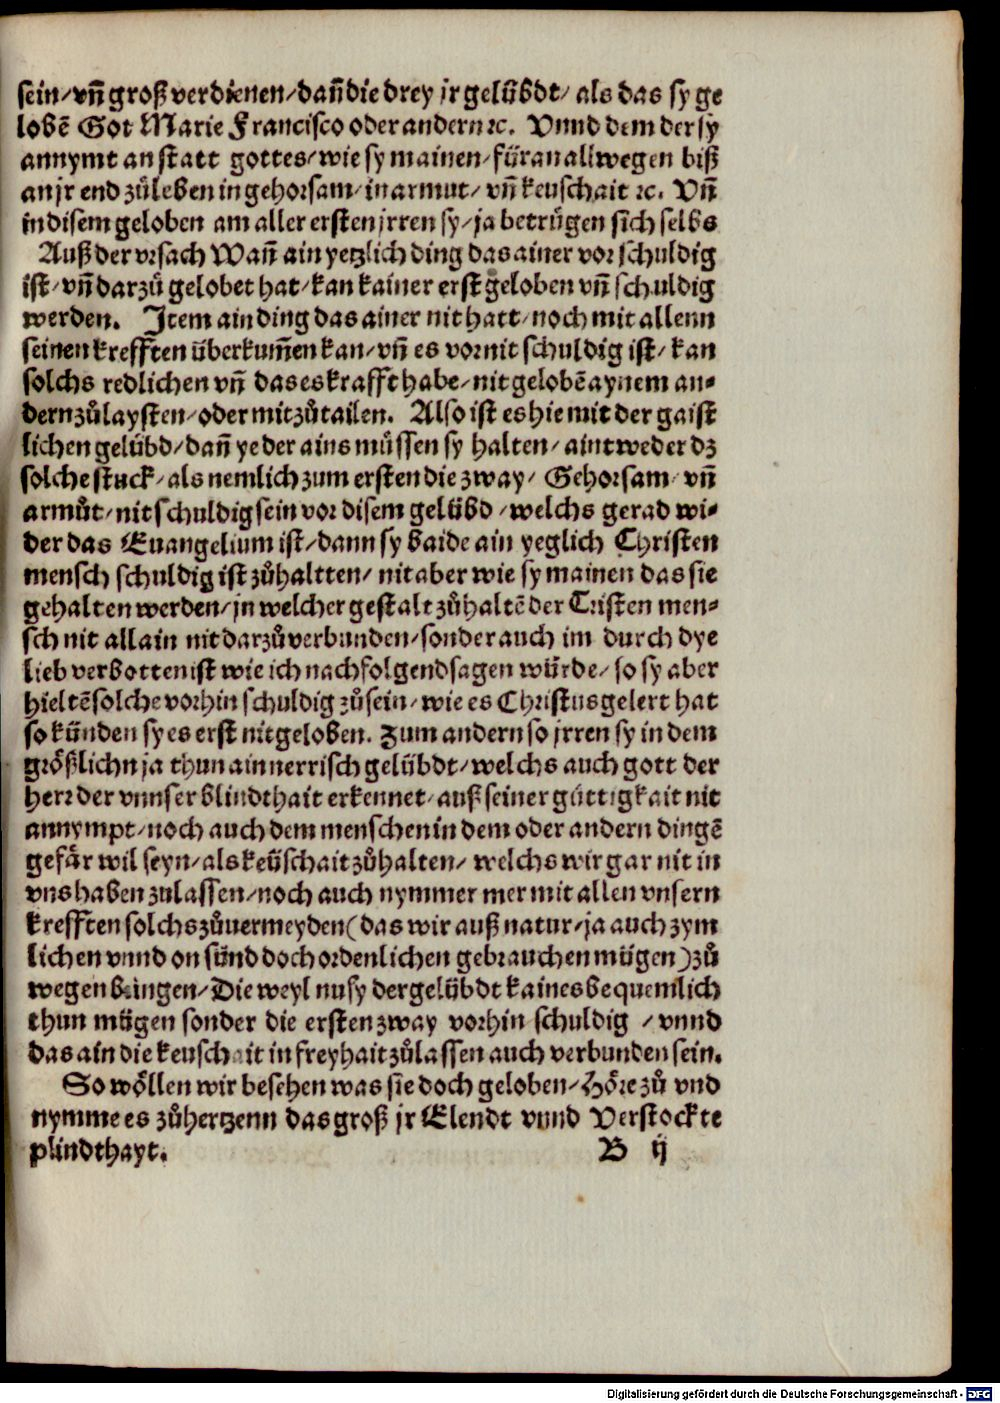 sein/ vñ groß verdienen/ dañ die drey jr gelübdt/ als das sy ge
lobē Got Marie Francisco oder andern ꝛc. Vnnd dem der sy
annymt an statt gottes/ wie sy mainen/ füran allwegen biß
an jr end zůleben in gehorsam/ in armut/ vñ keuschait ꝛc. Vñ
in disem geloben am aller ersten jrren sy/ ja betrügen sich selbs
Auß der vrsach Wañ ain yetzlich ding das ainer vor schuldig
ist/ vñ darzů gelobet hat/ kan kainer erst geloben vñ schuldig
werden. Item ain ding das ainer nit hatt/ noch mit allenn
seinen krefften überkum̃en kan/ vñ es vor nit schuldig ist/ kan
solchs redlichen vñ das es krafft habe/ nit gelobē aynem an⸗
dern zůlaysten/ oder mitzůtailen. Also ist es hie mit der gaist
lichen gelübd/ dañ yeder ains müssen sy halten/ aintweder dz
solche stuck/ als nemlich zum ersten die zway/ Gehorsam/ vñ
armůt/ nit schuldig sein vor disem gelübd/ welchs gerad wi⸗
der das Euangelium ist/ dann sy baide ain yeglich Christen
mensch schuldig ist zůhaltten/ nit aber wie sy mainen das sie
gehalten werden/ jn welcher gestalt zůhaltē der Cristen men⸗
sch nit allain nit darzů verbunden/ sonder auch im durch dye
lieb verbotten ist wie ich nachfolgend sagen würde/ so sy aber
hieltē solche vorhin schuldig zůsein/ wie es Christus gelert hat
so künden sy es erst nit geloben. Zum andern so jrren sy in dem
größlichn ja thun ain nerrisch gelübdt/ welchs auch gott der
herr der vnnser blindthait erkennet/ auß seiner güttigkait nit
annympt/ noch auch dem menschen in dem oder andern dingē
gefär wil seyn/ als keüschait zůhalten/ welchs wir gar nit in
vns haben zulassen/ noch auch nymmer mer mit allen vnsern
krefften solchs zůuermeyden (das wir auß natur/ ja auch zym
lichen vnnd on sünd doch ordenlichen gebrauchen mügen) zů
wegen bringen/ Die weyl nu sy der gelübdt kaines bequemlich
thun mügen sonder die ersten zway vorhin schuldig / vnnd
das ain die keuschait in freyhait zůlassen auch verbunden sein.
So wöllen wir besehen was sie doch geloben/ Höre zů vnd
nymme es zůhertzenn das groß jr Elendt vnnd Verstockte
plindthayt. B ij
Digitalisierung gefördert durch die Deutsche Forschungsgemeinschaft - DFG